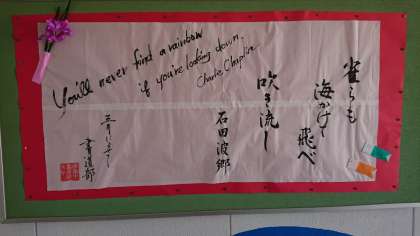 You'll never find a rainbow
if you're looking down.
Charlie Chaplin
雀らも
海かけて
飛べ
吹き流し
石田波郷
五月によせて
書道部